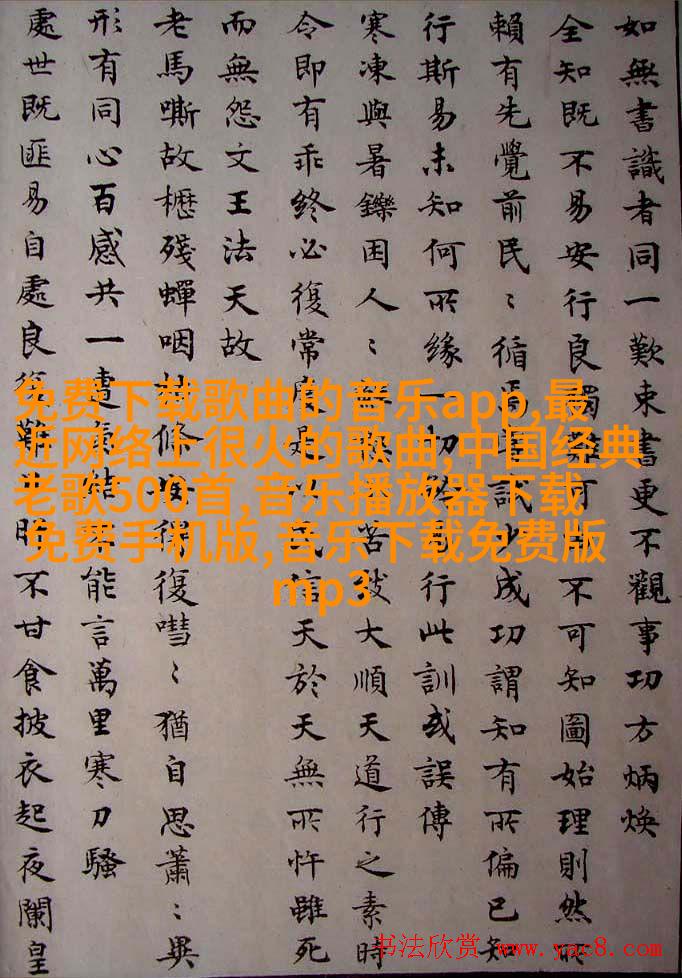 如無書識者同一歎束書更不觀事功方炳煥
全知既不易安行良獨難可不可知圖始理則然所
賴有先覺前民〻循焉試成功謂知有所偏已知
行斯易未知何所緣一切行此訓或誤傳
寒凍與暑鑠困人〻無苦被大順天道行之素時
令即有乖終必復常是信天於天無所忤雖死
而無怨文王法天故
老馬嘶故櫪殘蟬咽條復嘒〻猶自思蕭〻異
形有同心百感共一能言萬里寒刀騷
處世既匪易自處良復難不甘食披衣起夜闌皇
免费下载歌曲的音乐app,最
近网络上很火的歌曲,中国经典
老歌500首,音乐播放器下载
免费手机版,音乐下载免费版
mp3
书法欣赏 www.yac8.com